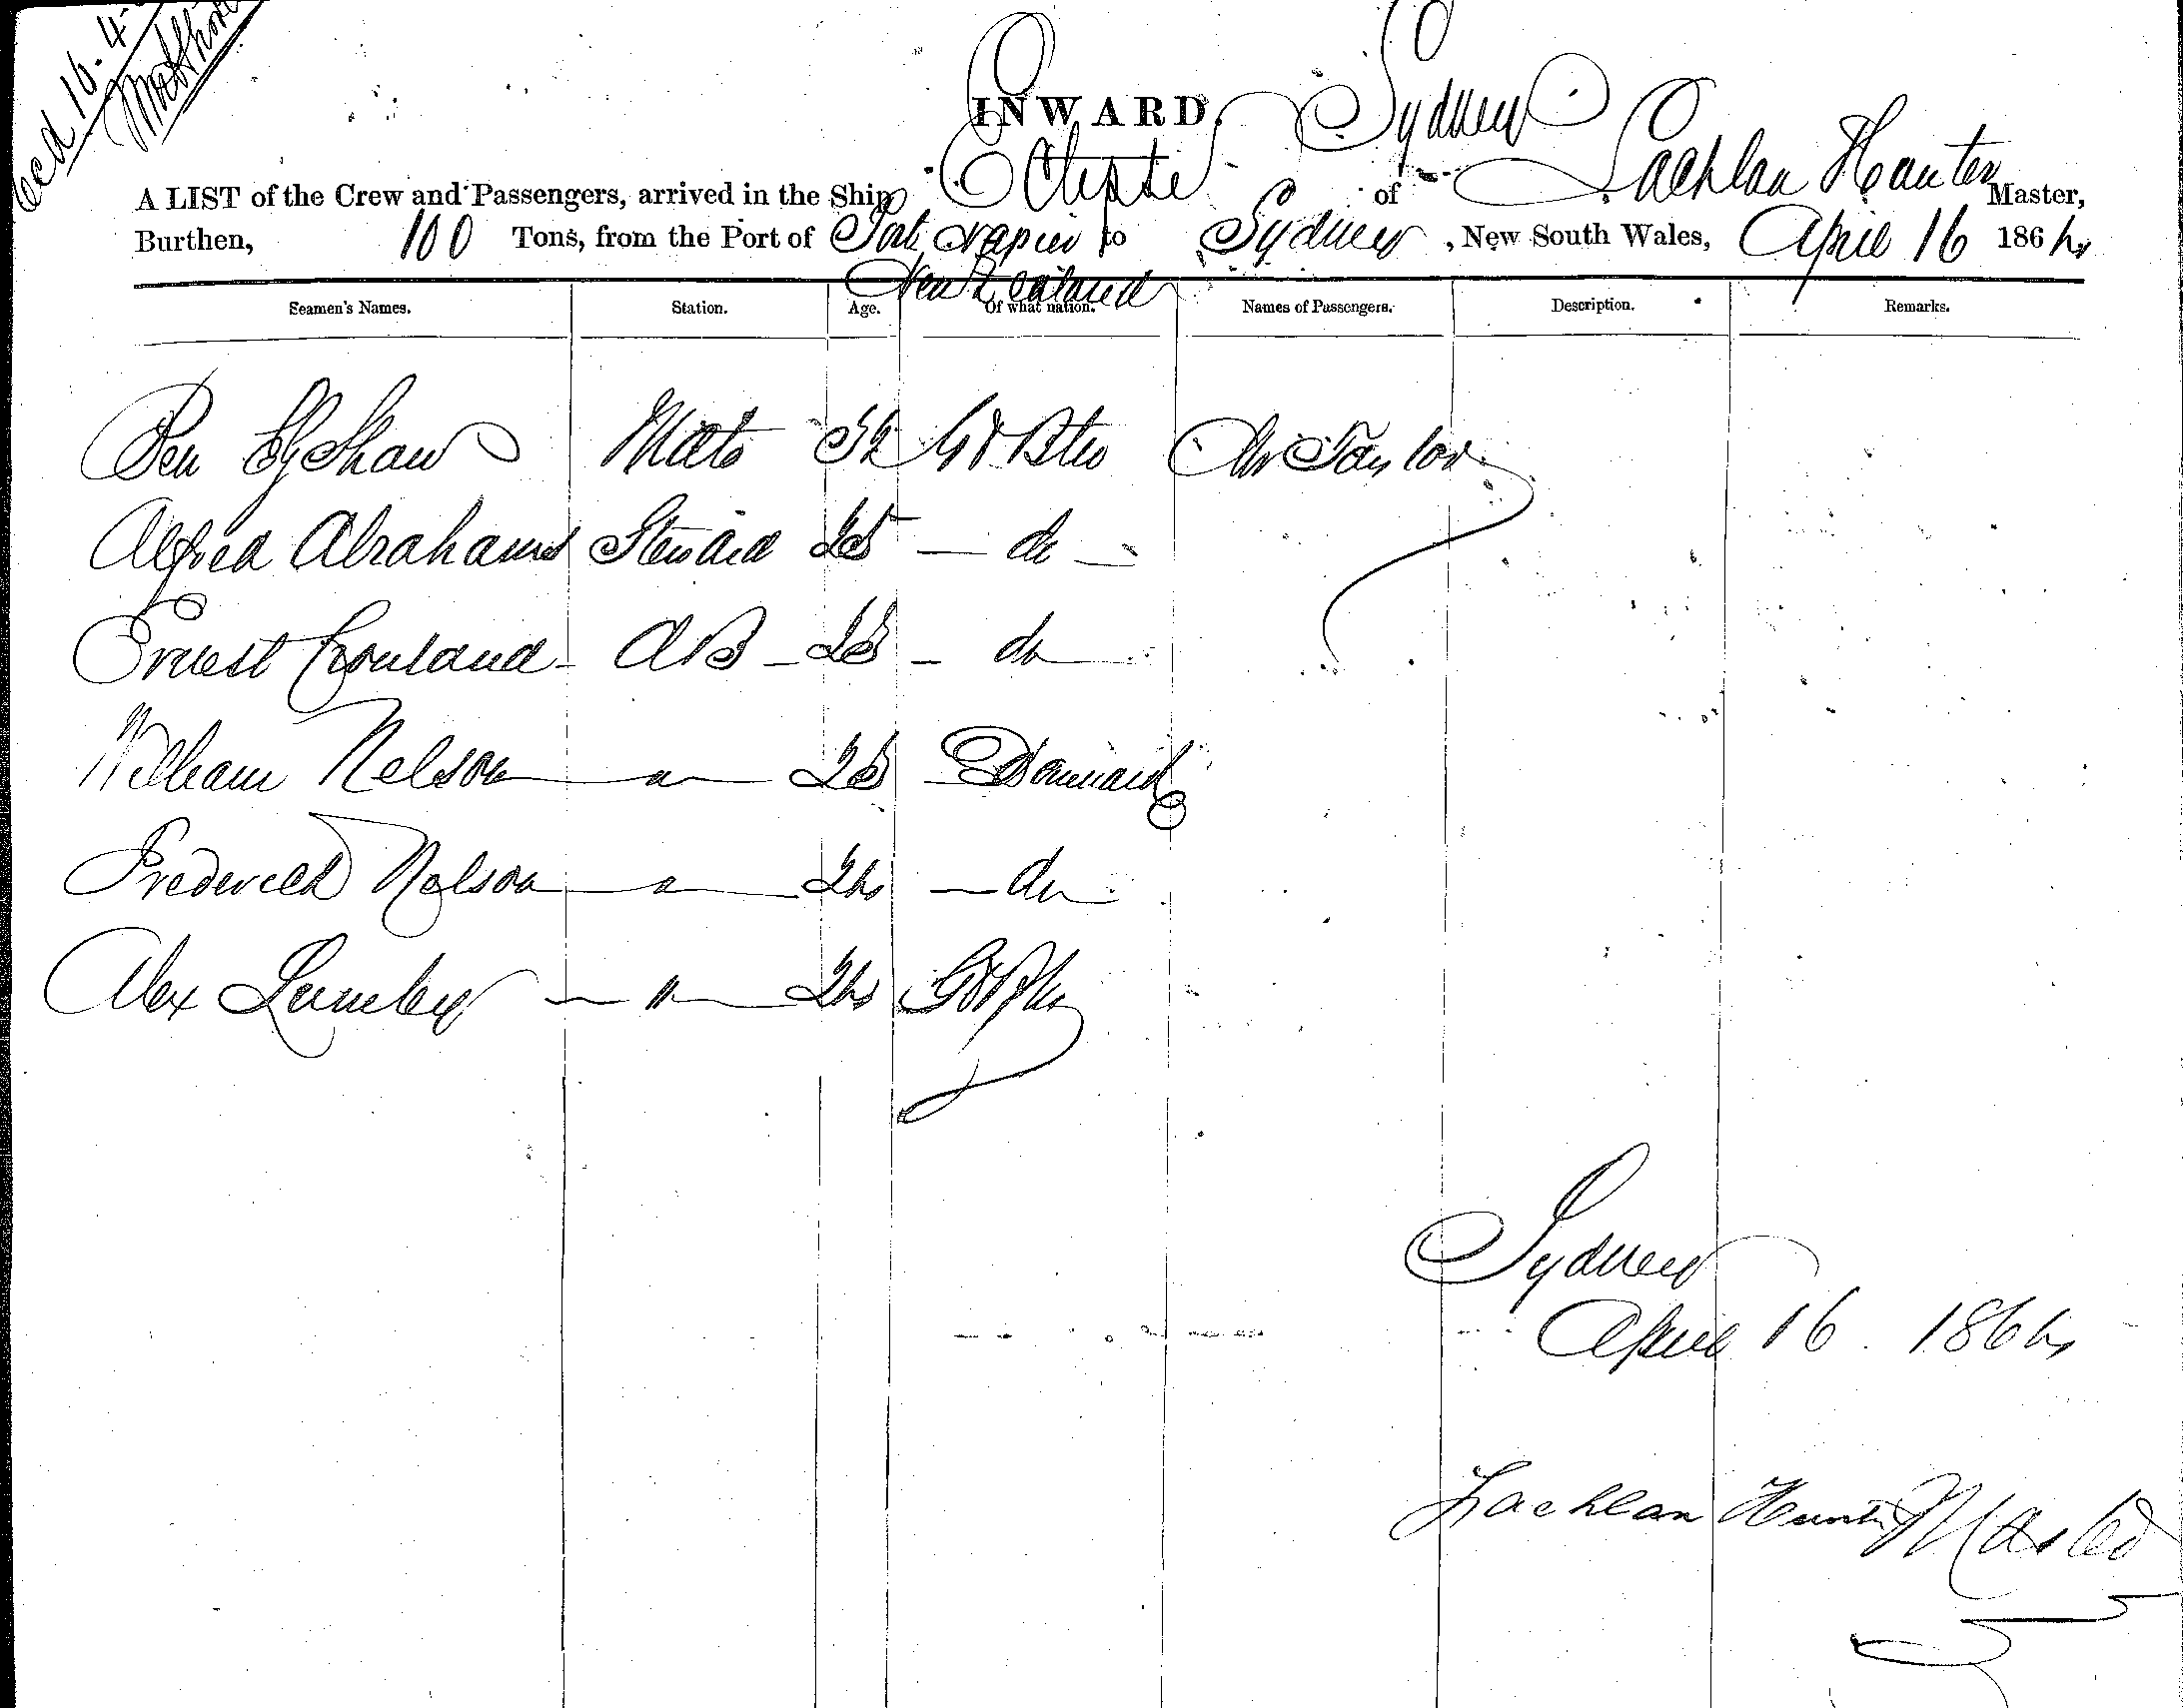 Recd 16-4-
INWARD.
A LIST of the Crew and Passengers, arrived in the Ship Eclipse of Sydney Lachlan Hunter Master,
Burthen, 100 Tons, from the Port of Port Napier to Sydney, New South Wales, April 16 1864
New Zealand
Seamen's Names. Station. Age. Of what nation. Names of Passengers. Description. Remarks.
Ben Shaw Mate Gt Btn Mr Taylor
Alfred Abrahams Steward 25 — do —
Ernest AB - 25 - do
William Nelson — " — 25 — Denmark
Frederick Nelson — " — 24 — do
Alex Lumley — " — 24 Gt Btn
Sydney
April 16. 1864
Lachlan Hunter Master